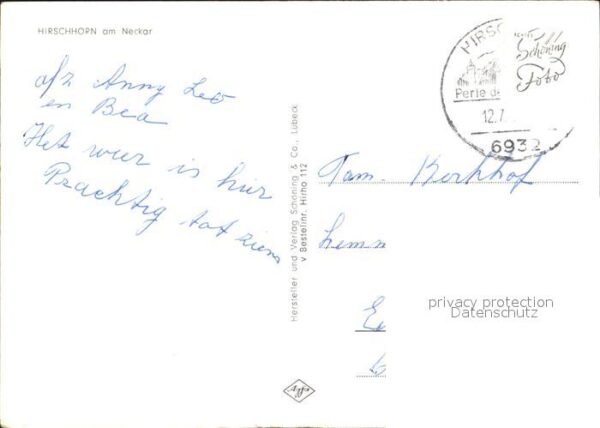 HIRSCHHORN am Neckar
afz Anny Leo
en Bea
Het weer is hier
Prachtig tot ziens
Hersteller und Verlag Schöning & Co., Lübeck
v Bestellnr. Hirho 112
Agfa
HIRSC
Perle d
12.7.
6932
Schöning
Foto
Fam. Berkhof
privacy protection
Datenschutz